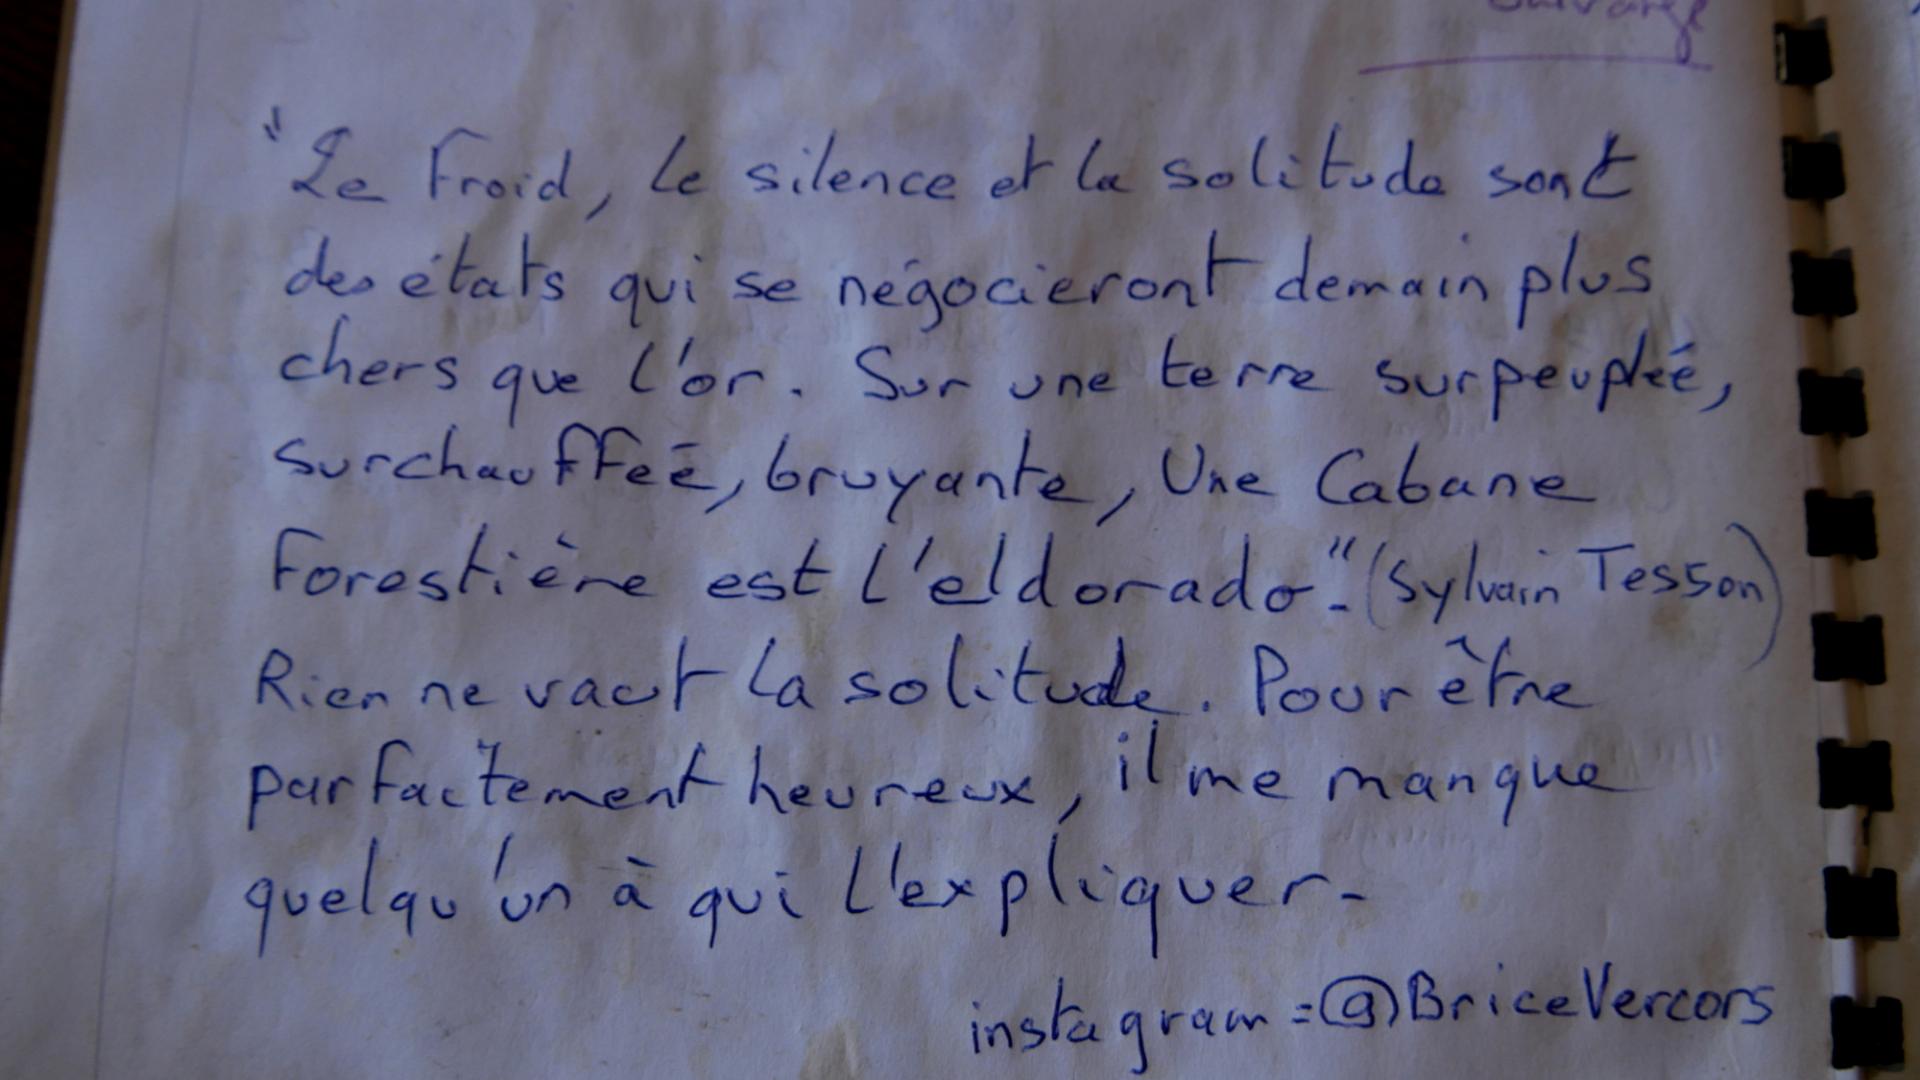 "Le froid, le silence et la solitude sont
des états qui se négocieront demain plus
chers que l'or. Sur une terre surpeuplée,
surchauffée, bruyante, Une Cabane
Forestière est l'eldorado". (Sylvain Tesson)
Rien ne vaut la solitude. Pour être
parfaitement heureux, il me manque
quelqu'un à qui l'expliquer.
instagram = @BriceVercors